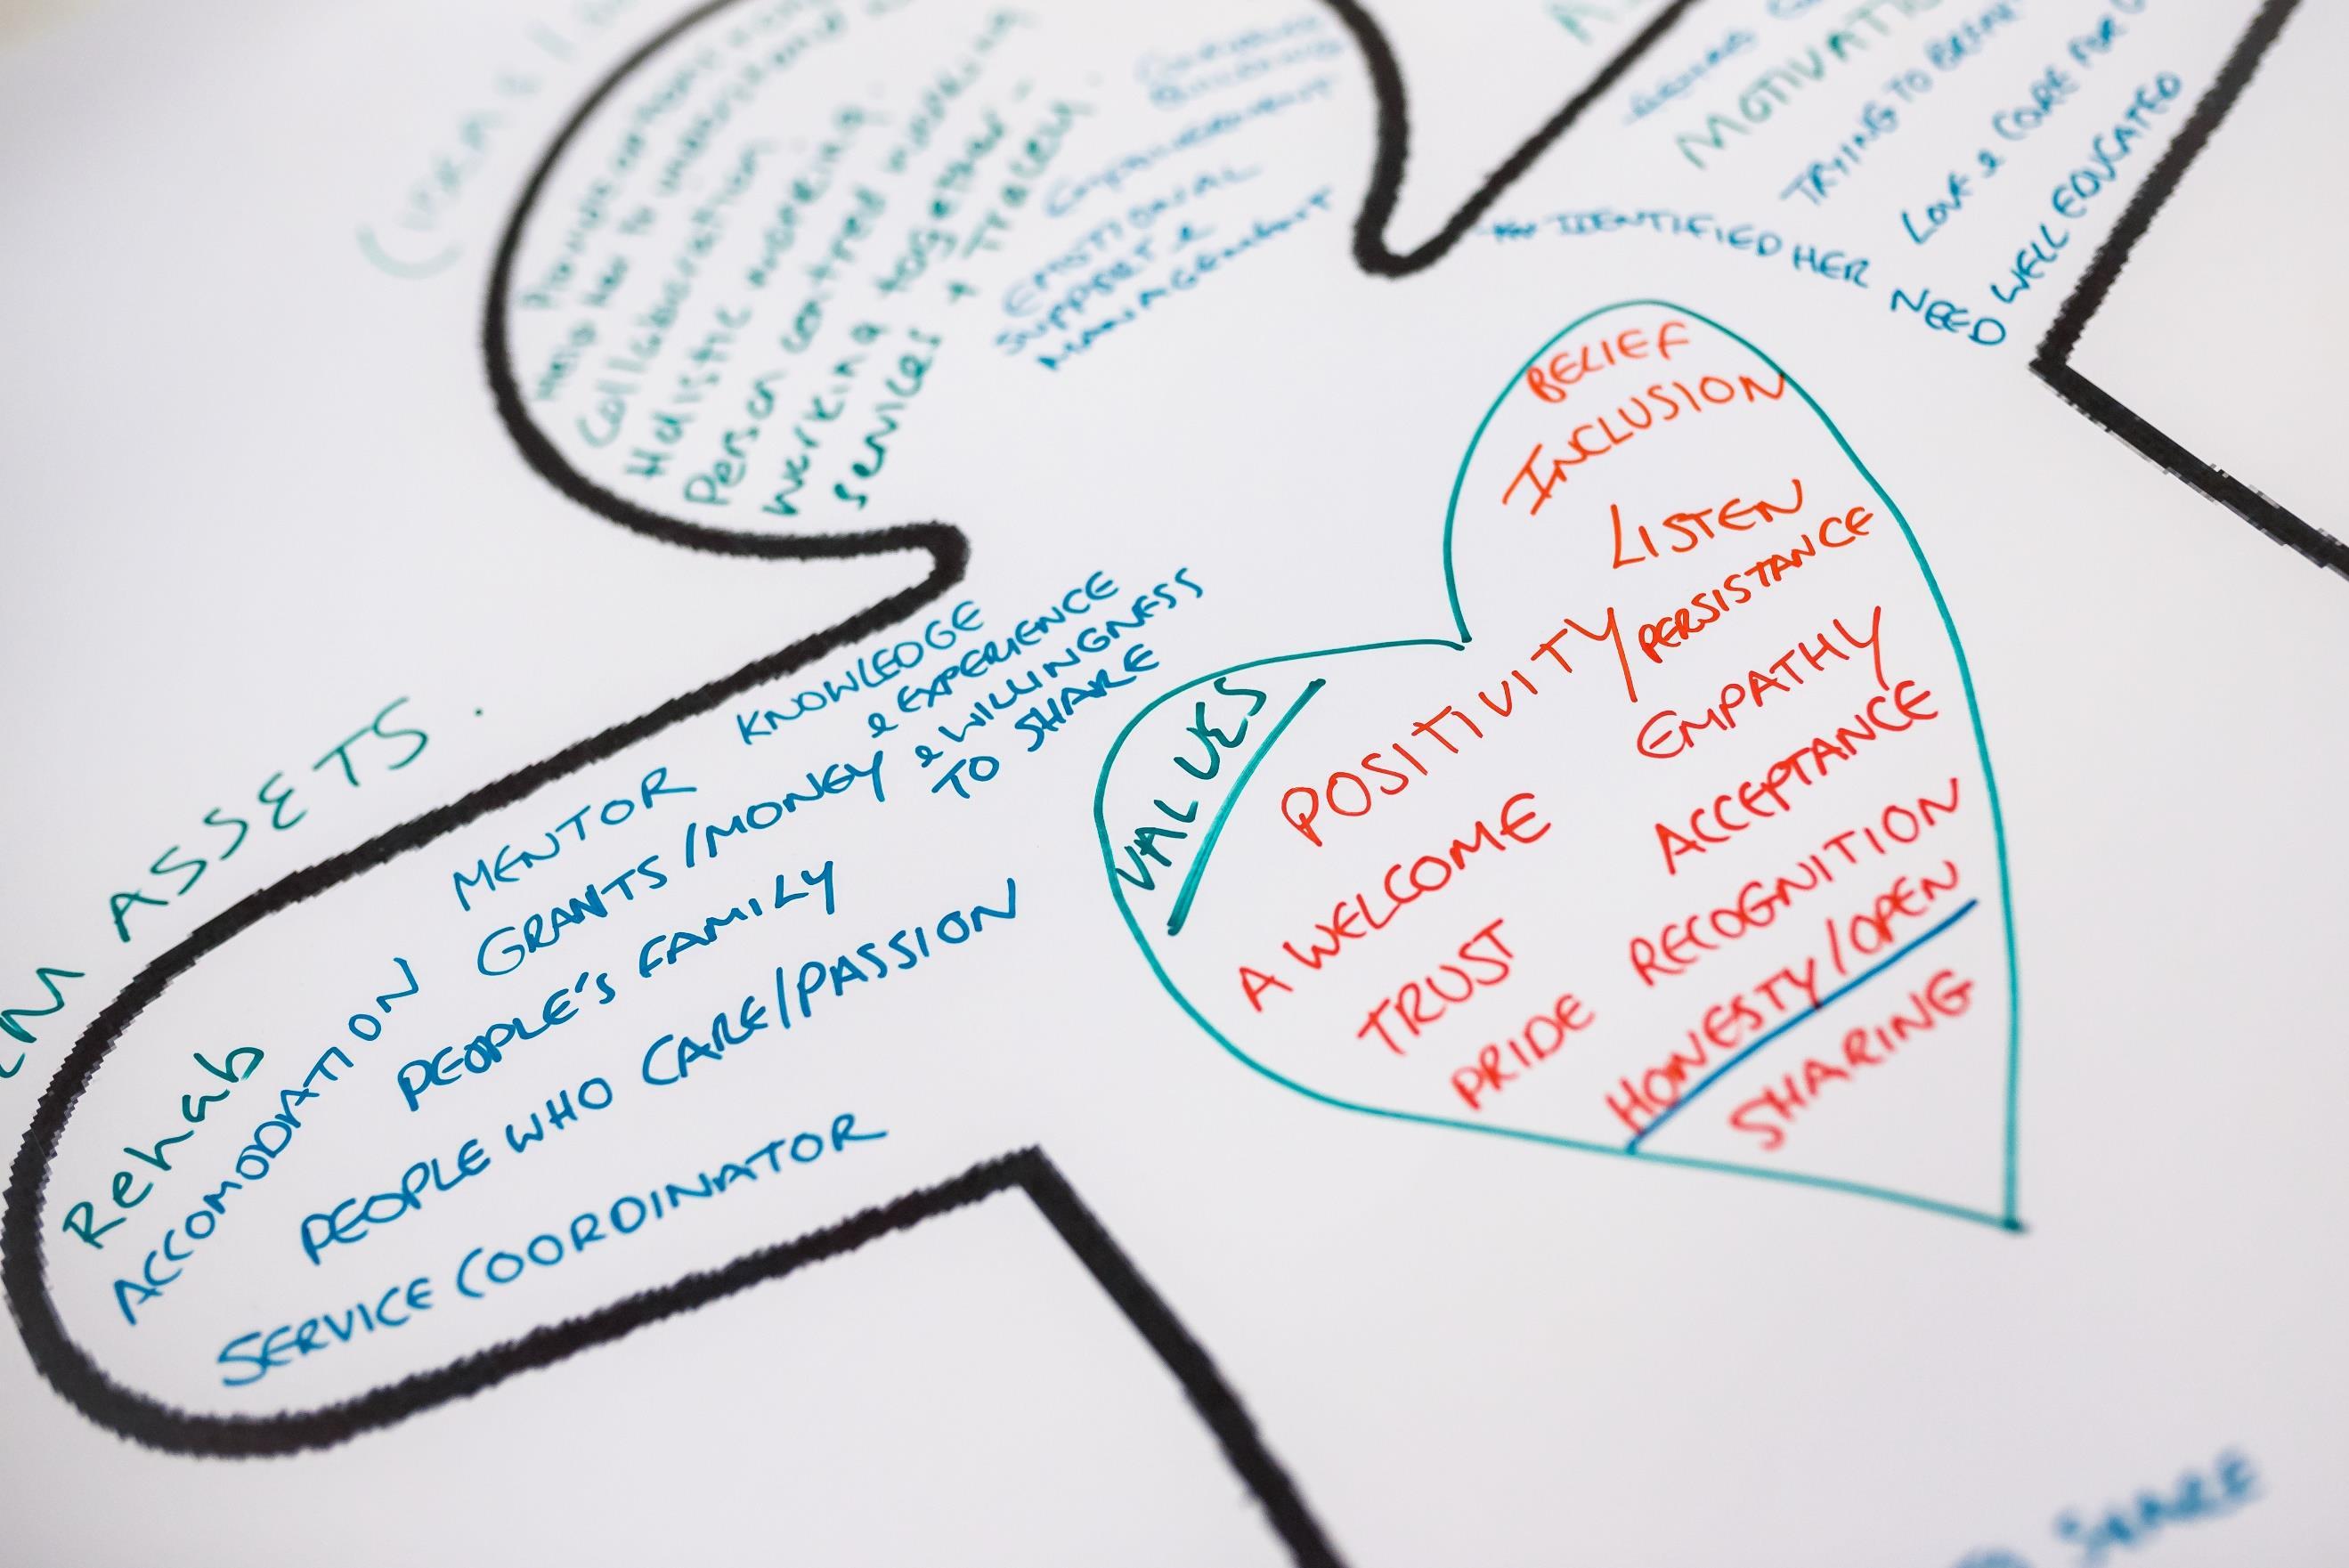 MOTIVATI
TRYING TO BEING
LOVE & CARE FOR
WELL EDUCATED
IDENTIFIED HER NEED
Collaboration
Holistic working.
Person centred working
Working together -
services + Tracey.
EMOTIONAL
SUPPORT &
MANAGEMENT
ASSETS.
KNOWLEDGE
& EXPERIENCE
& WILLINGNESS
TO SHARE
MENTOR
GRANTS/MONEY
Rehab
ACCOMODATION
PEOPLE'S FAMILY
PEOPLE WHO CARE/PASSION
SERVICE COORDINATOR
VALUES
BELIEF
INCLUSION
LISTEN
PERSISTANCE
POSITIVITY
EMPATHY
ACCEPTANCE
A WELCOME
RECOGNITION
TRUST
HONESTY/OPEN
PRIDE
SHARING
SHARE